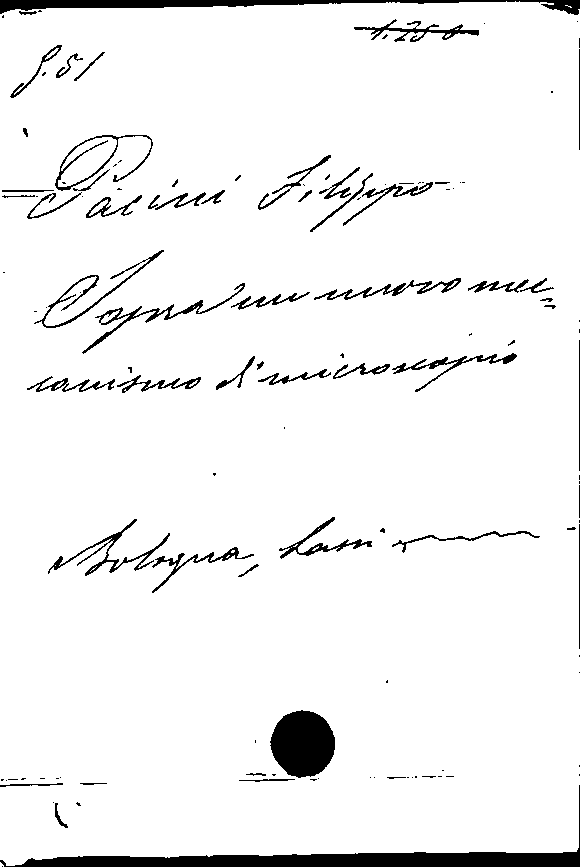 1.250
g. 51
Pacini Filippo
Sopra un nuovo mec=
canismo di microscopio
Bologna, Sassi